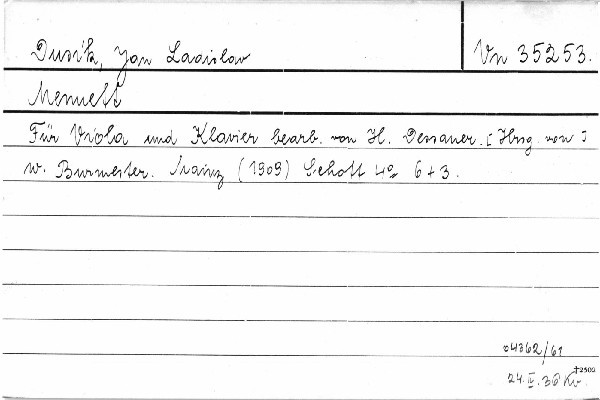 Dusik, Jan Ladislav
Vn 35253.
Menuett
Für Viola und Klavier bearb. von H. Dessauer. [Hrsg. von]
W. Burmester. Mainz (1909) Schott 4° 6+3.
04362/61
†2500
24. IV. 30